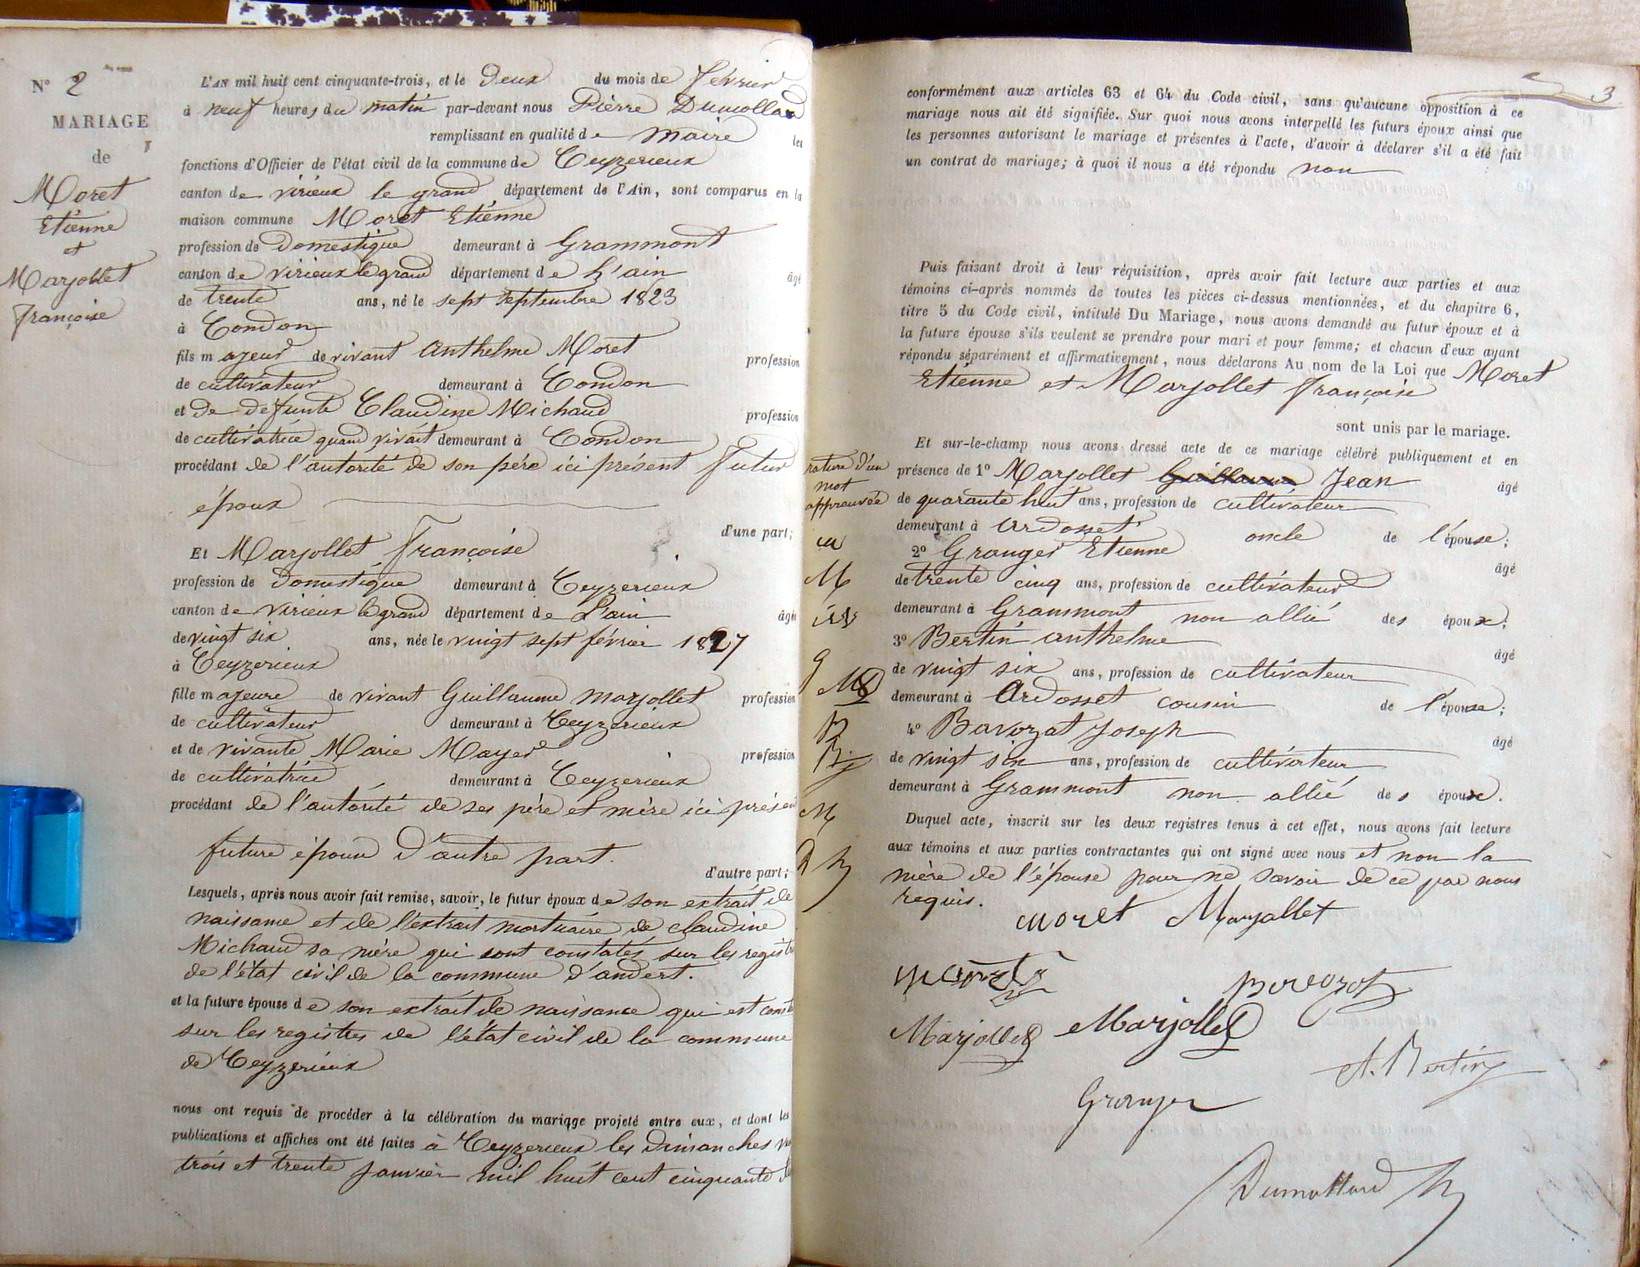 N° 2
MARIAGE
de
Moret
Etienne
et
Marjollet
françoise
L'AN mil huit cent cinquante-trois, et le Deux du mois de février
à neuf heures du matin par-devant nous Pierre Dumollard
remplissant en qualité de maire les
fonctions d'Officier de l'état civil de la commune de Ceyzerieux
canton de virieux le grand département de l'Ain, sont comparus en la
maison commune Moret Etienne
profession de Domestique demeurant à Grammont
canton de virieux le grand département de L'ain âgé
de trente ans, né le sept septembre 1823
à Condon
fils majeur de vivant Anthelme Moret profession
de cultivateur demeurant à Condon
et de defunte Claudine Michaud profession
de cultivatrice quand vivait demeurant à Condon
procédant de l'autorité de son père ici présent futur
époux
d'une part;
Et Marjollet françoise
profession de Domestique demeurant à Ceyzerieux
canton de Virieux le grand département de L'ain âgée
de vingt six ans, née le vingt sept février 1827
à Ceyzerieux
fille majeure de vivant Guillaume Marjollet profession
de cultivateur demeurant à Ceyzerieux
et de vivante Marie Mayer profession
de cultivatrice demeurant à Ceyzerieux
procédant de l'autorité de ses père et mère ici présen
future épouse D'autre part.
d'autre part;
Lesquels, après nous avoir fait remise, savoir, le futur époux de son extrait de
naissance et de l'extrait mortuaire de claudine
Michaud sa mère qui sont constatés sur les regist
de l'état civil de la commune d'andert.
et la future épouse de son extrait de naissance qui est const
sur les registres de l'état civil de la commune
de Ceyzerieux
nous ont requis de procéder à la célébration du mariage projeté entre eux, et dont les
publications et affiches ont été faites à Ceyzerieux les Dimanches
trois et trente janvier mil huit cent cinquante
3
conformément aux articles 63 et 64 du Code civil, sans qu'aucune opposition à ce
mariage nous ait été signifiée. Sur quoi nous avons interpellé les futurs époux ainsi que
les personnes autorisant le mariage et présentes à l'acte, d'avoir à déclarer s'il a été fait
un contrat de mariage; à quoi il nous a été répondu non
Puis faisant droit à leur réquisition, après avoir fait lecture aux parties et aux
témoins ci-après nommés de toutes les pièces ci-dessus mentionnées, et du chapitre 6,
titre 5 du Code civil, intitulé Du Mariage, nous avons demandé au futur époux et à
la future épouse s'ils veulent se prendre pour mari et pour femme; et chacun d'eux ayant
répondu séparément et affirmativement, nous déclarons Au nom de la Loi que Moret
Etienne et Marjollet françoise
sont unis par le mariage.
Et sur-le-champ nous avons dressé acte de ce mariage célébré publiquement et en
présence de 1° Marjollet Guillaume Jean âgé
de quarante huit ans, profession de cultivateur
demeurant à Ardosset oncle de l'épouse;
2° Granger Etienne âgé
de trente cinq ans, profession de cultivateur
demeurant à Grammont non allié des époux;
3° Bertin anthelme âgé
de vingt six ans, profession de cultivateur
demeurant à Ardosset cousin de l'épouse;
4° Bavozat Joseph âgé
de vingt six ans, profession de cultivateur
demeurant à Grammont non allié des époux.
Duquel acte, inscrit sur les deux registres tenus à cet effet, nous avons fait lecture
aux témoins et aux parties contractantes qui ont signé avec nous et non la
mère de l'épouse pour ne savoir de ce par nous
requis.
rature d'un
mot
approuvée
M
g
B
M
moret Marjollet
Bovozat
Marjollet Marjollet
A. Bertin
Granger
Dumollard